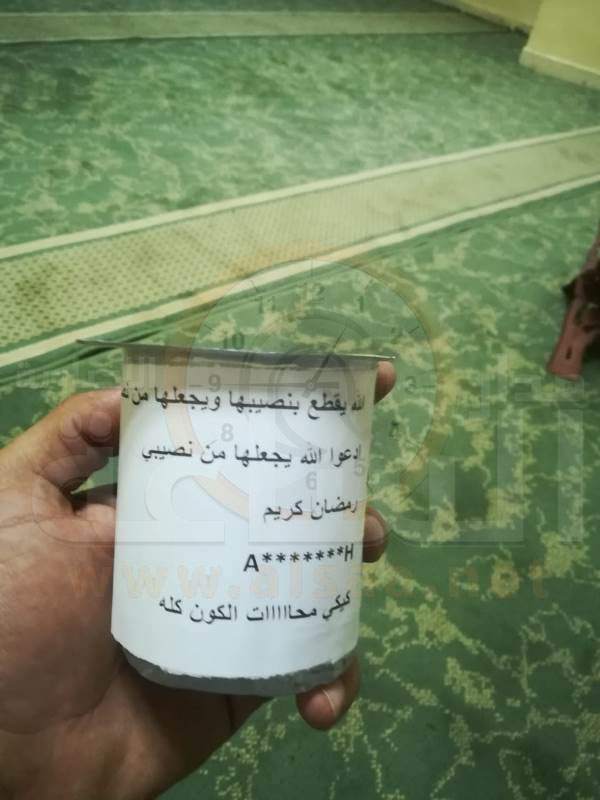 الله يقطع بنصيبها ويجعلها من
ادعوا الله يجعلها من نصيبي
رمضان كريم
A*******H
كيكي محااااات الكون كله
12
1
2
3
5
6
8
9
10
11
www.alsaa.net